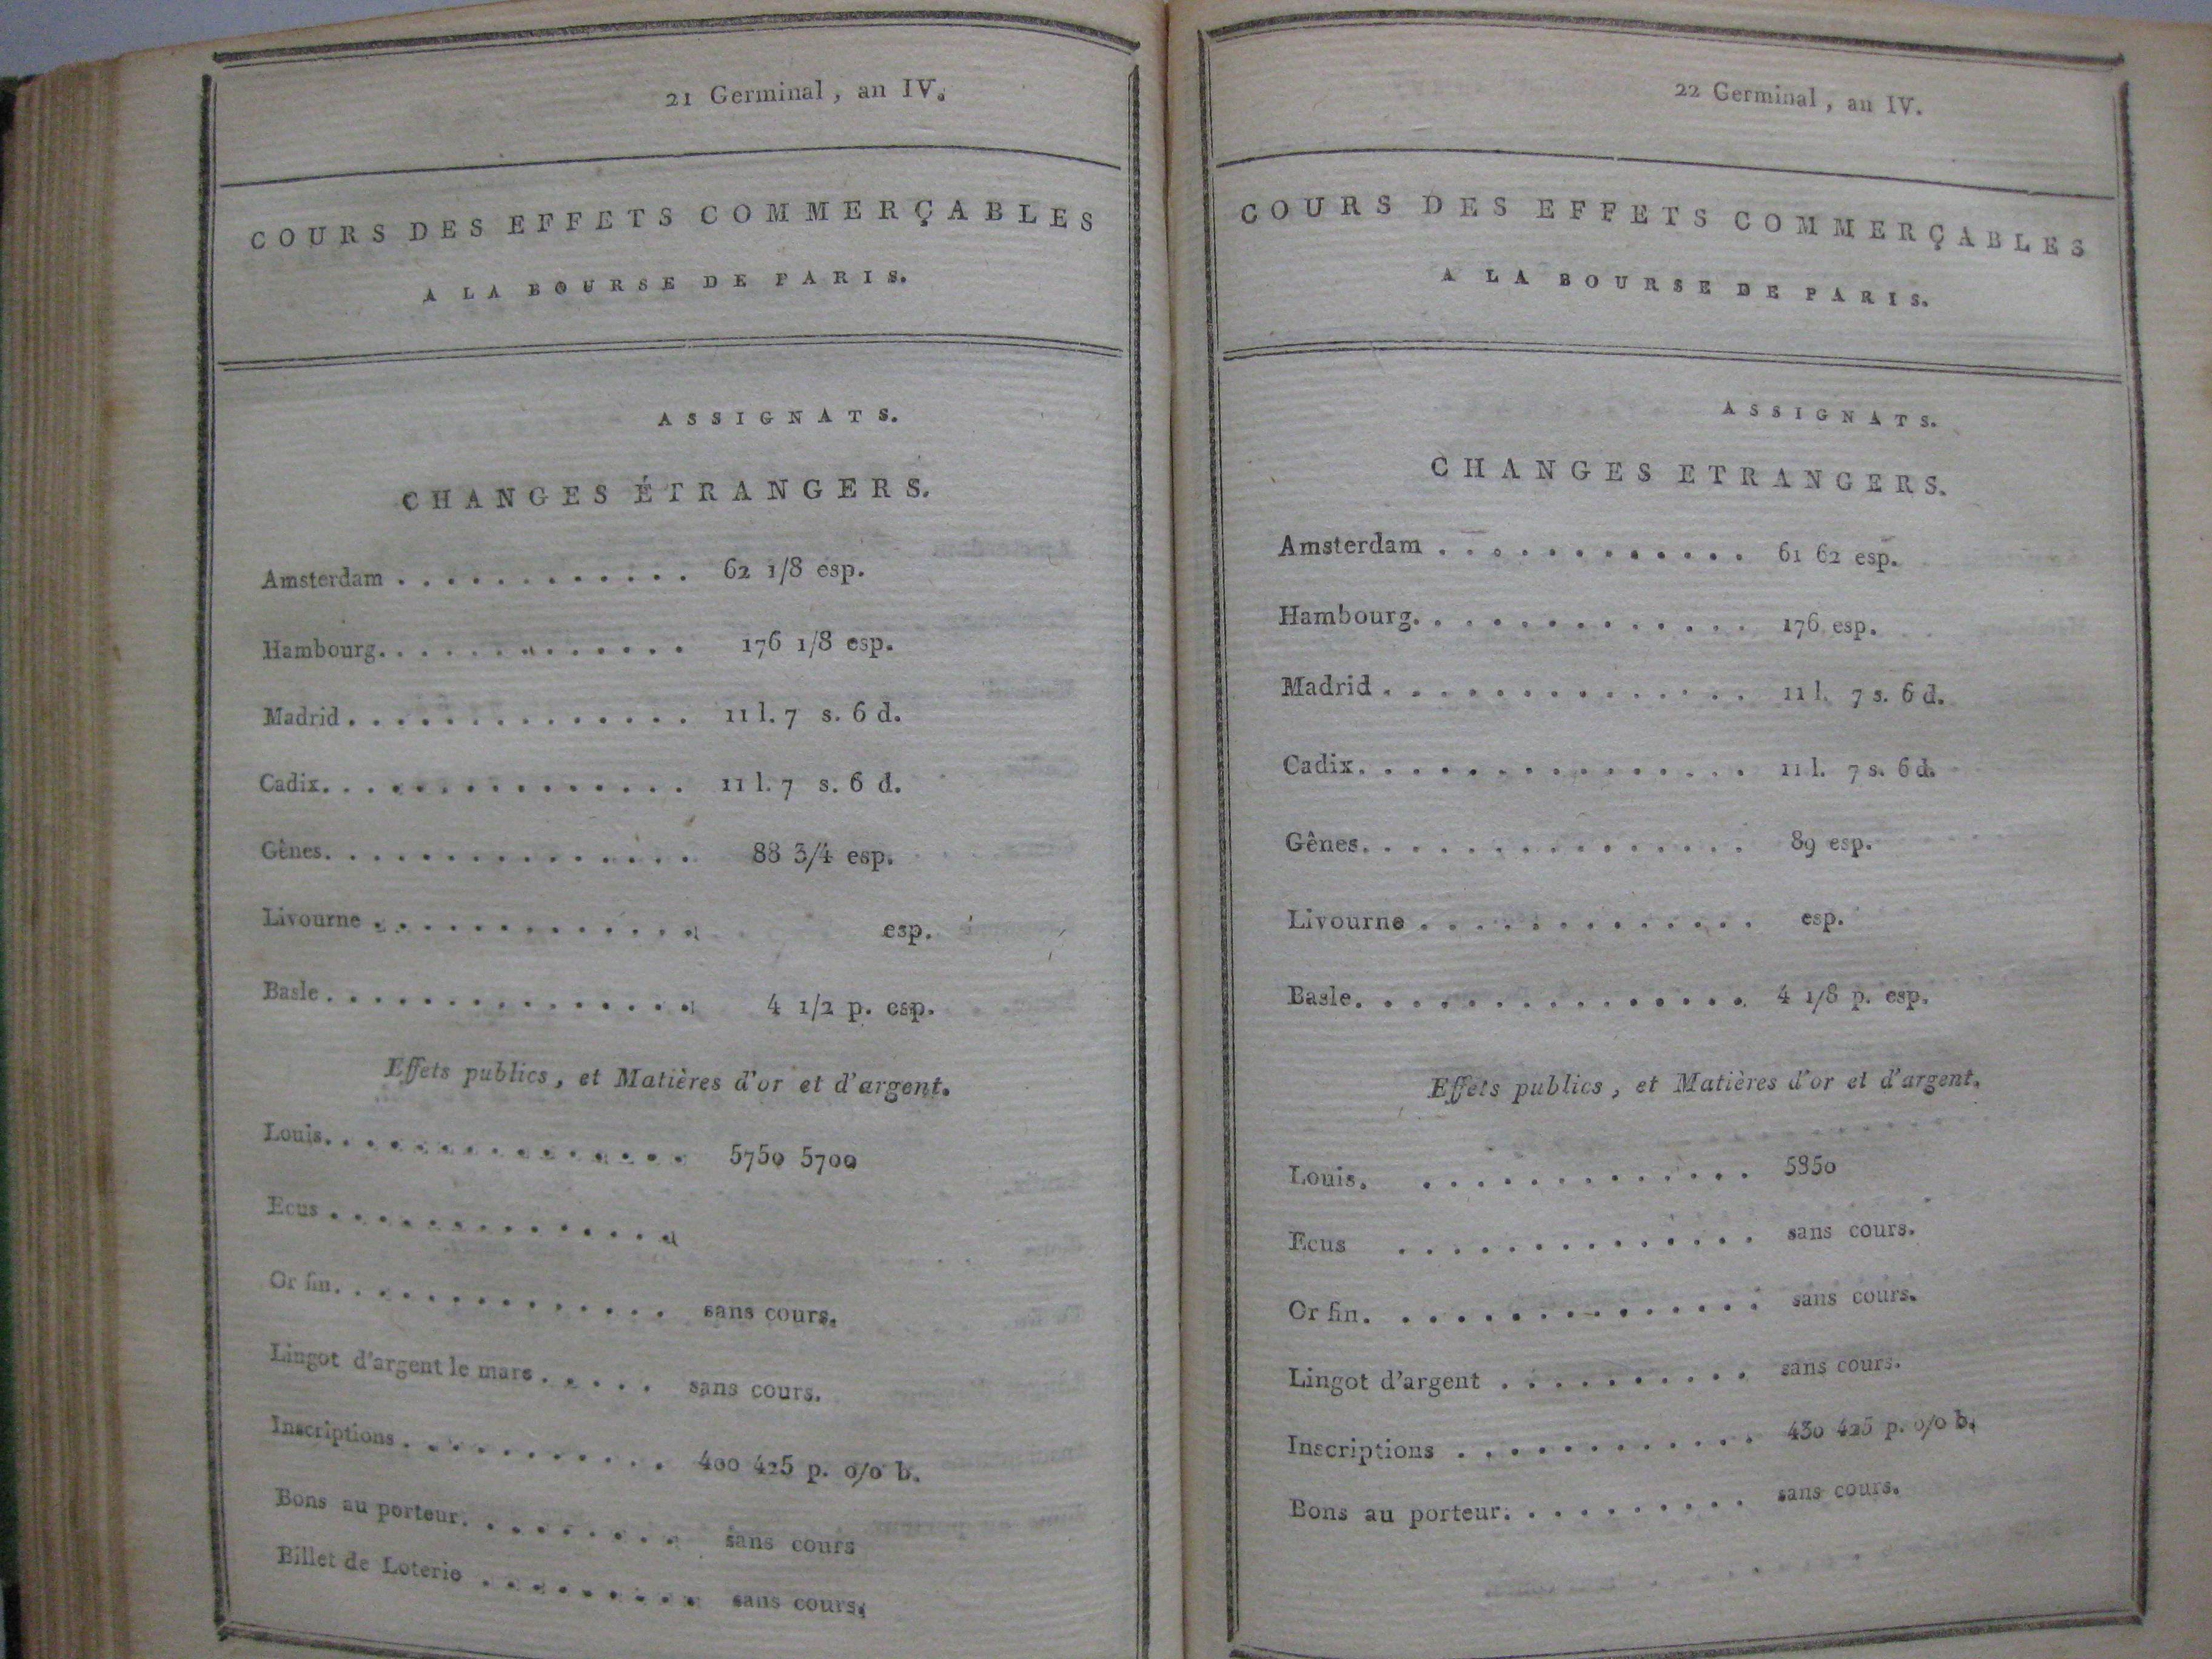 21 Germinal, an IV.
COURS DES EFFETS COMMERÇABLES
A LA BOURSE DE PARIS.
ASSIGNATS.
CHANGES ÉTRANGERS.
Amsterdam . . . . . . . . . . . . 62 1/8 esp.
Hambourg. . . . . . . . . . . . . 176 1/8 esp.
Madrid . . . . . . . . . . . . . . 11 l. 7 s. 6 d.
Cadix. . . . . . . . . . . . . . . 11 l. 7 s. 6 d.
Gênes. . . . . . . . . . . . . . . 88 3/4 esp.
Livourne . . . . . . . . . . . . . esp.
Basle . . . . . . . . . . . . . . . 4 1/2 p. esp.
Effets publics, et Matières d'or et d'argent.
Louis. . . . . . . . . . . . . . . 5750 5700
Ecus . . . . . . . . . . . . . .
Or fin. . . . . . . . . . . . . . sans cours.
Lingot d'argent le marc . . . . . sans cours.
Inscriptions . . . . . . . . . . . 400 425 p. o/o b.
Bons au porteur. . . . . . . . . sans cours
Billet de Loterie . . . . . . . . . sans cours.
22 Germinal, an IV.
COURS DES EFFETS COMMERÇABLES
A LA BOURSE DE PARIS.
ASSIGNATS.
CHANGES ETRANGERS.
Amsterdam . . . . . . . . . . . . 61 62 esp.
Hambourg. . . . . . . . . . . . . 176 esp.
Madrid . . . . . . . . . . . . . . 11 l. 7 s. 6 d.
Cadix. . . . . . . . . . . . . . . 11 l. 7 s. 6 d.
Gênes. . . . . . . . . . . . . . . 89 esp.
Livourne . . . . . . . . . . . . . esp.
Basle. . . . . . . . . . . . . . . 4 1/8 p. esp.
Effets publics, et Matières d'or et d'argent.
Louis. . . . . . . . . . . . . 5850
Ecus . . . . . . . . . . . . . sans cours.
Or fin. . . . . . . . . . . . . . sans cours.
Lingot d'argent . . . . . . . . . sans cours.
Inscriptions . . . . . . . . . . . 430 425 p. o/o b.
Bons au porteur. . . . . . . . . . sans cours.